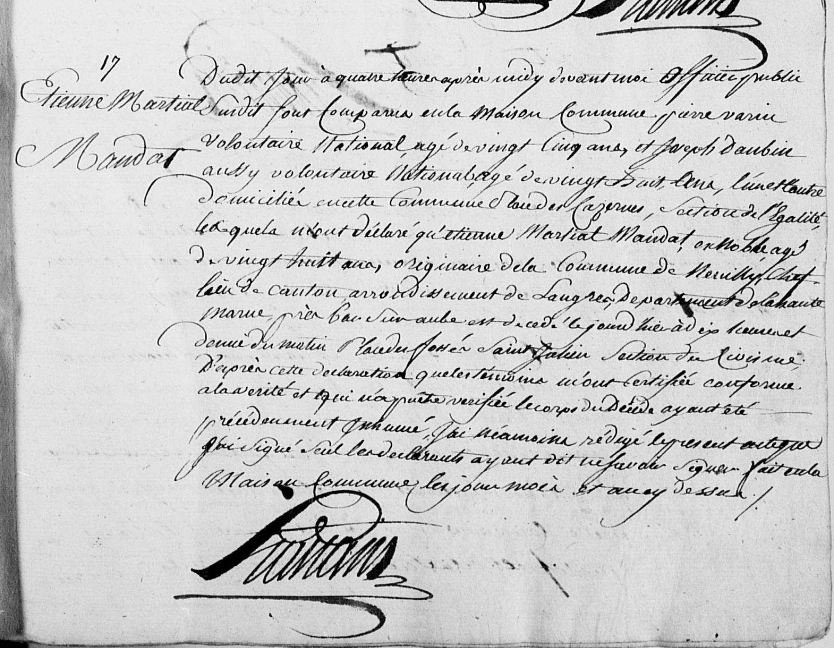 17
Etienne Martial
Mandat
Dudit jour à quatre heures après midy devant moi officier public
Susdit sont comparus en la Maison Commune pierre varin
volontaire National, agé de vingt Cinq ans, et Joseph Daubin
aussy volontaire National, agé de vingt huit Ans, l'un et l'autre
domiciliés en cette Commune place des Cazernes, Section de l'Egalité,
Lesquels m'ont déclaré qu'étienne Martial Mandat, agé
de vingt huit ans, originaire de la Commune de Neuilly, Chef
lieu de canton arrondissement de Langres, Departement de la haute
marne, près bar sur aube est décédé le jourd'hier à dix heures et
demie du matin Place des fossés Saint Julien Section du Civisme,
D'après cette déclaration que les temoins m'ont Certifiée conforme
a la verité et qui n'a pu être verifiée le corps du Décédé ayant été
précédemment Inhumé, J'ai néamoins rédigé le present acte que
j'ai signé seul les declarants ayant dit ne savoir signer fait en la
Maison Commune les jour mois et an cy dessus ./.